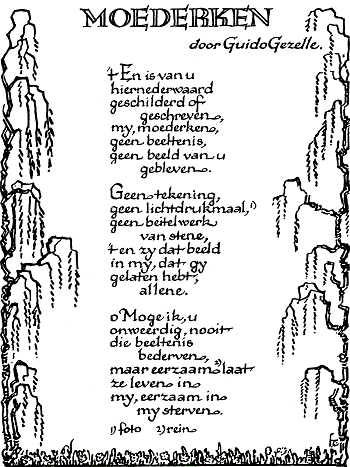 MOEDERKEN
door Guido Gezelle.
't En is van u
hiernederwaard
geschilderd of
geschreven,
my, moederken,
geen beeltenis,
geen beeld van u
gebleven.
Geen tekening,
geen lichtdrukmaal,¹)
geen beitelwerk
van stene,
't en zy dat beeld
in my, dat gy
gelaten hebt,
allene.
o Moge ik, u
onweerdig, nooit
die beeltenis
bederven,
maar eerzaam²) laat
ze leven in
my, eerzaam in
my sterven.
1) foto 2) rein